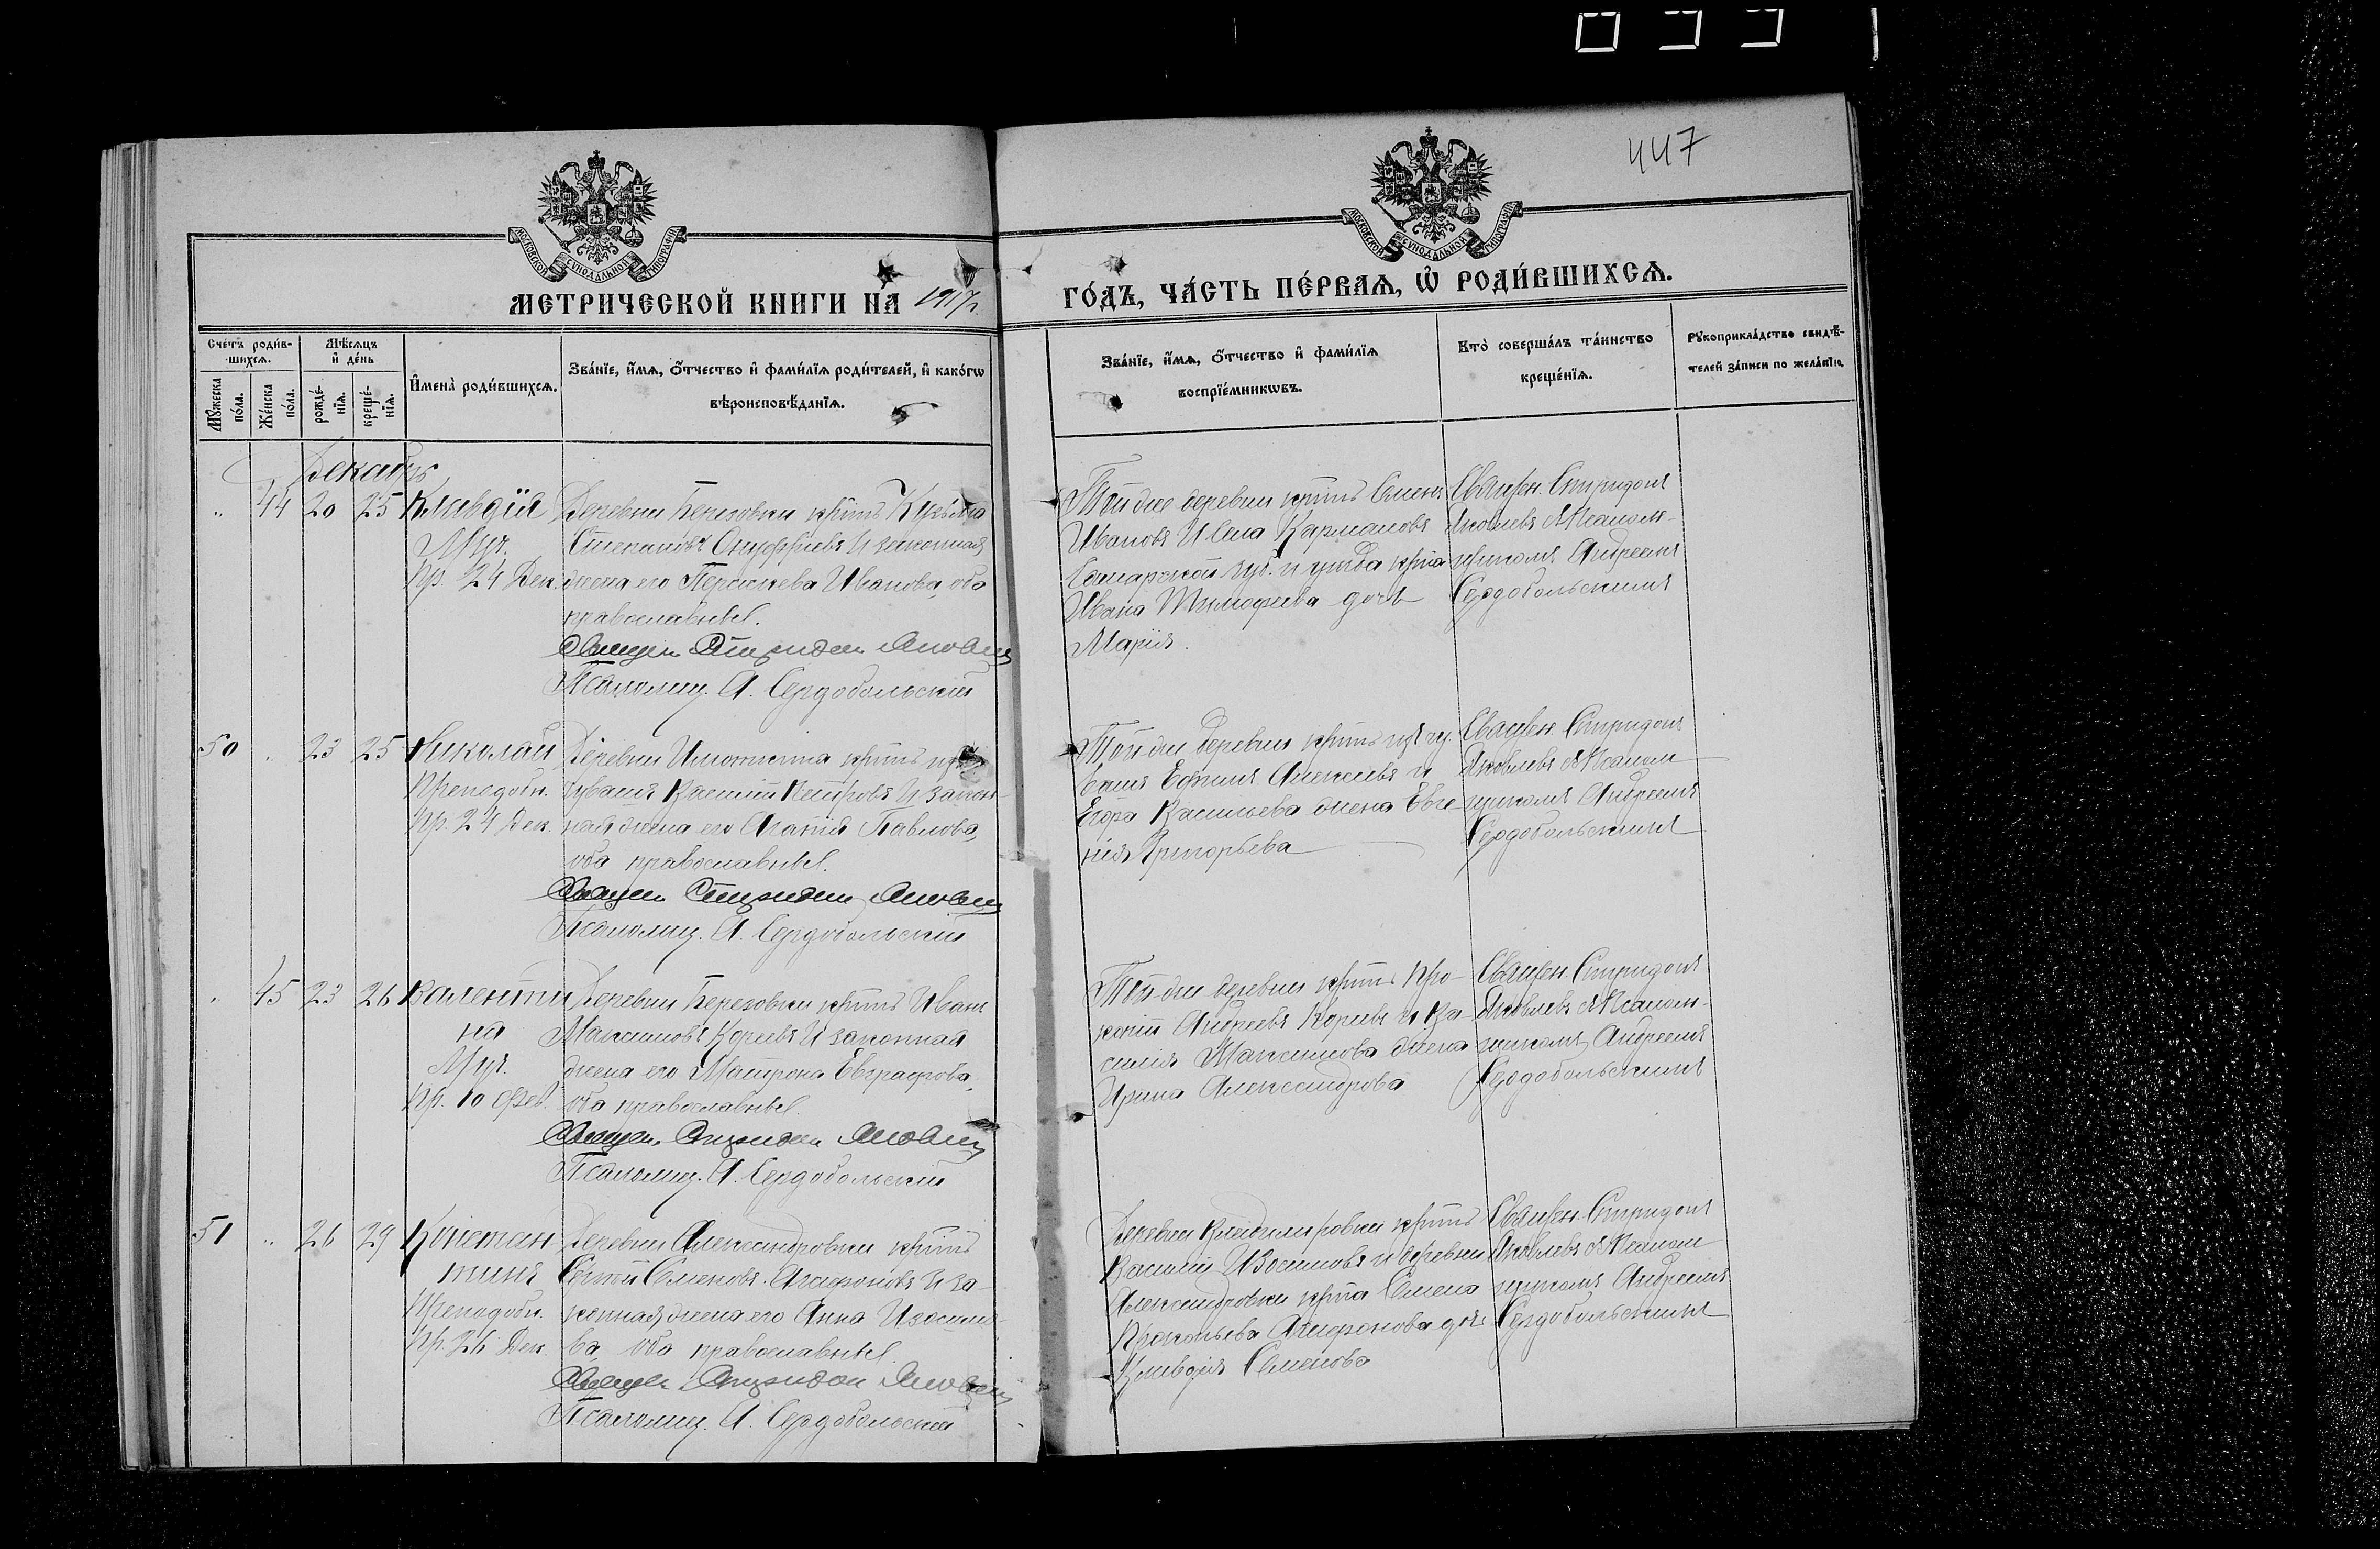 447
МОСКОВСКОЙ СУНОДАЛЬНОЙ ТИПОГРАФІИ
МОСКОВСКОЙ СУНОДАЛЬНОЙ ТИПОГРАФІИ
МЕТРИЧЕСКОЙ КНИГИ НА́ 1917г.
ГО́ДЪ, ЧА́СТЬ ПЕ́РВАѦ, Ѡ РОДИ́ВШИХСѦ.
Сче́тъ роди́в-
шихсѧ.
Мꙋ́жеска
по́ла.
Же́нска
по́ла.
Мѣ́сѧцъ
и де́нь
рожде́-
нїѧ.
креще́-
нїѧ.
Имена̀ роди́вшихсѧ.
Зва́нїе, и́мѧ, о́тчество и фами́лїѧ роди́телей, и како́гѡ
вѣроисповѣ́данїѧ.
Зва́нїе, и́мѧ, о́тчество и фами́лїѧ
воспрїе́мникѡвъ.
Кто̀ соверша́лъ та́инство
креще́нїѧ.
Рꙋкоприкла́дство свидѣ́-
телей за́писи по жела́нїю.
Декабрь
" 44 20 25 Клавдія
Муч.
Пр. 24 Дек.
Деревни Березовки кр̃тнъ Кузьма
Степановъ Онуфріевъ и законная
жена его Параскева Иванова, оба
православные.
Священ. Спиридон Яковлев
Псаломщ. А. Сердобольскій
Той же деревни кр̃тнъ Семенъ
Ивановъ и села
Самарской губ. и уѣзда кр̃тна
Ивана Тимофеева дочь
Марія.
Священ. Спиридонъ
Яковлевъ съ Псалом-
щикомъ Андреемъ
Сердобольскимъ
50 " 23 25 Николай
Преподобн.
Пр. 24 Дек.
Деревни кр̃тнъ изъ
чувашъ Василій Петровъ и закон-
ная жена его Агапія Павлова,
оба православные.
Священ. Спиридон Яковлев
Псаломщ. А. Сердобольскій
Той же деревни кр̃тнъ изъ чу-
вашъ Ефимъ Алексѣевъ и
Егора Васильева жена Евге-
нія Григорьева
Священ. Спиридонъ
Яковлевъ съ Псалом
щикомъ Андреемъ
Сердобольскимъ
" 45 23 26 Валенти
на
Муч.
Пр. 10 Фев.
Деревни Березовки кр̃тнъ Иванъ
Максимовъ Коревъ и законная
жена его Матрона Евграфова,
оба православные.
Священ. Спиридон Яковлев
Псаломщ. А. Сердобольскій
Той же деревни кр̃тнъ Про-
копій Андреевъ Коревъ и Ва-
силія Максимова жена
Ирина Александрова
Священ. Спиридонъ
Яковлевъ съ Псалом-
щикомъ Андреемъ
Сердобольскимъ
51 " 26 29 Констан
тинъ
Преподобн.
Пр. 26 Дек.
Деревни Александровки кр̃тнъ
Сергѣй Семеновъ Агафоновъ и за-
конная жена его Анна Изосимо-
ва, оба православные
Священ. Спиридон Яковлев
Псаломщ. А. Сердобольскій
Деревни Владимировки кр̃тнъ
Василій Изосимовъ и деревни
Александровки кр̃тна Семена
Прокопьева Агафонова дочь
Клавдія Семенова
Священ. Спиридонъ
Яковлевъ съ Псалом
щикомъ Андреемъ
Сердобольскимъ